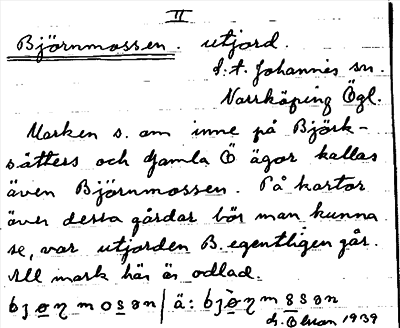 II
Björnmossen. utjord.
S:t Johannis sn.
Norrköping Ögl.
Marken s. om inne på Björk-
sätters och Gamla Ö ägor kallas
även Björnmossen. På kartor
över dessa gårdar bör man kunna
se, var utjorden B. egentligen går.
All mark här är odlad.
bjɵŋmosən / ä: bjɵ̀ŋmosən
1939